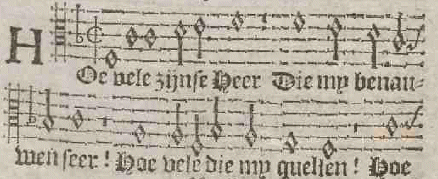 HOe vele zijnse Heer Die my benau-
wen seer! Hoe vele die my quellen! Hoe